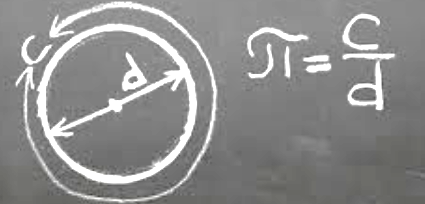 C
d
π = C/d